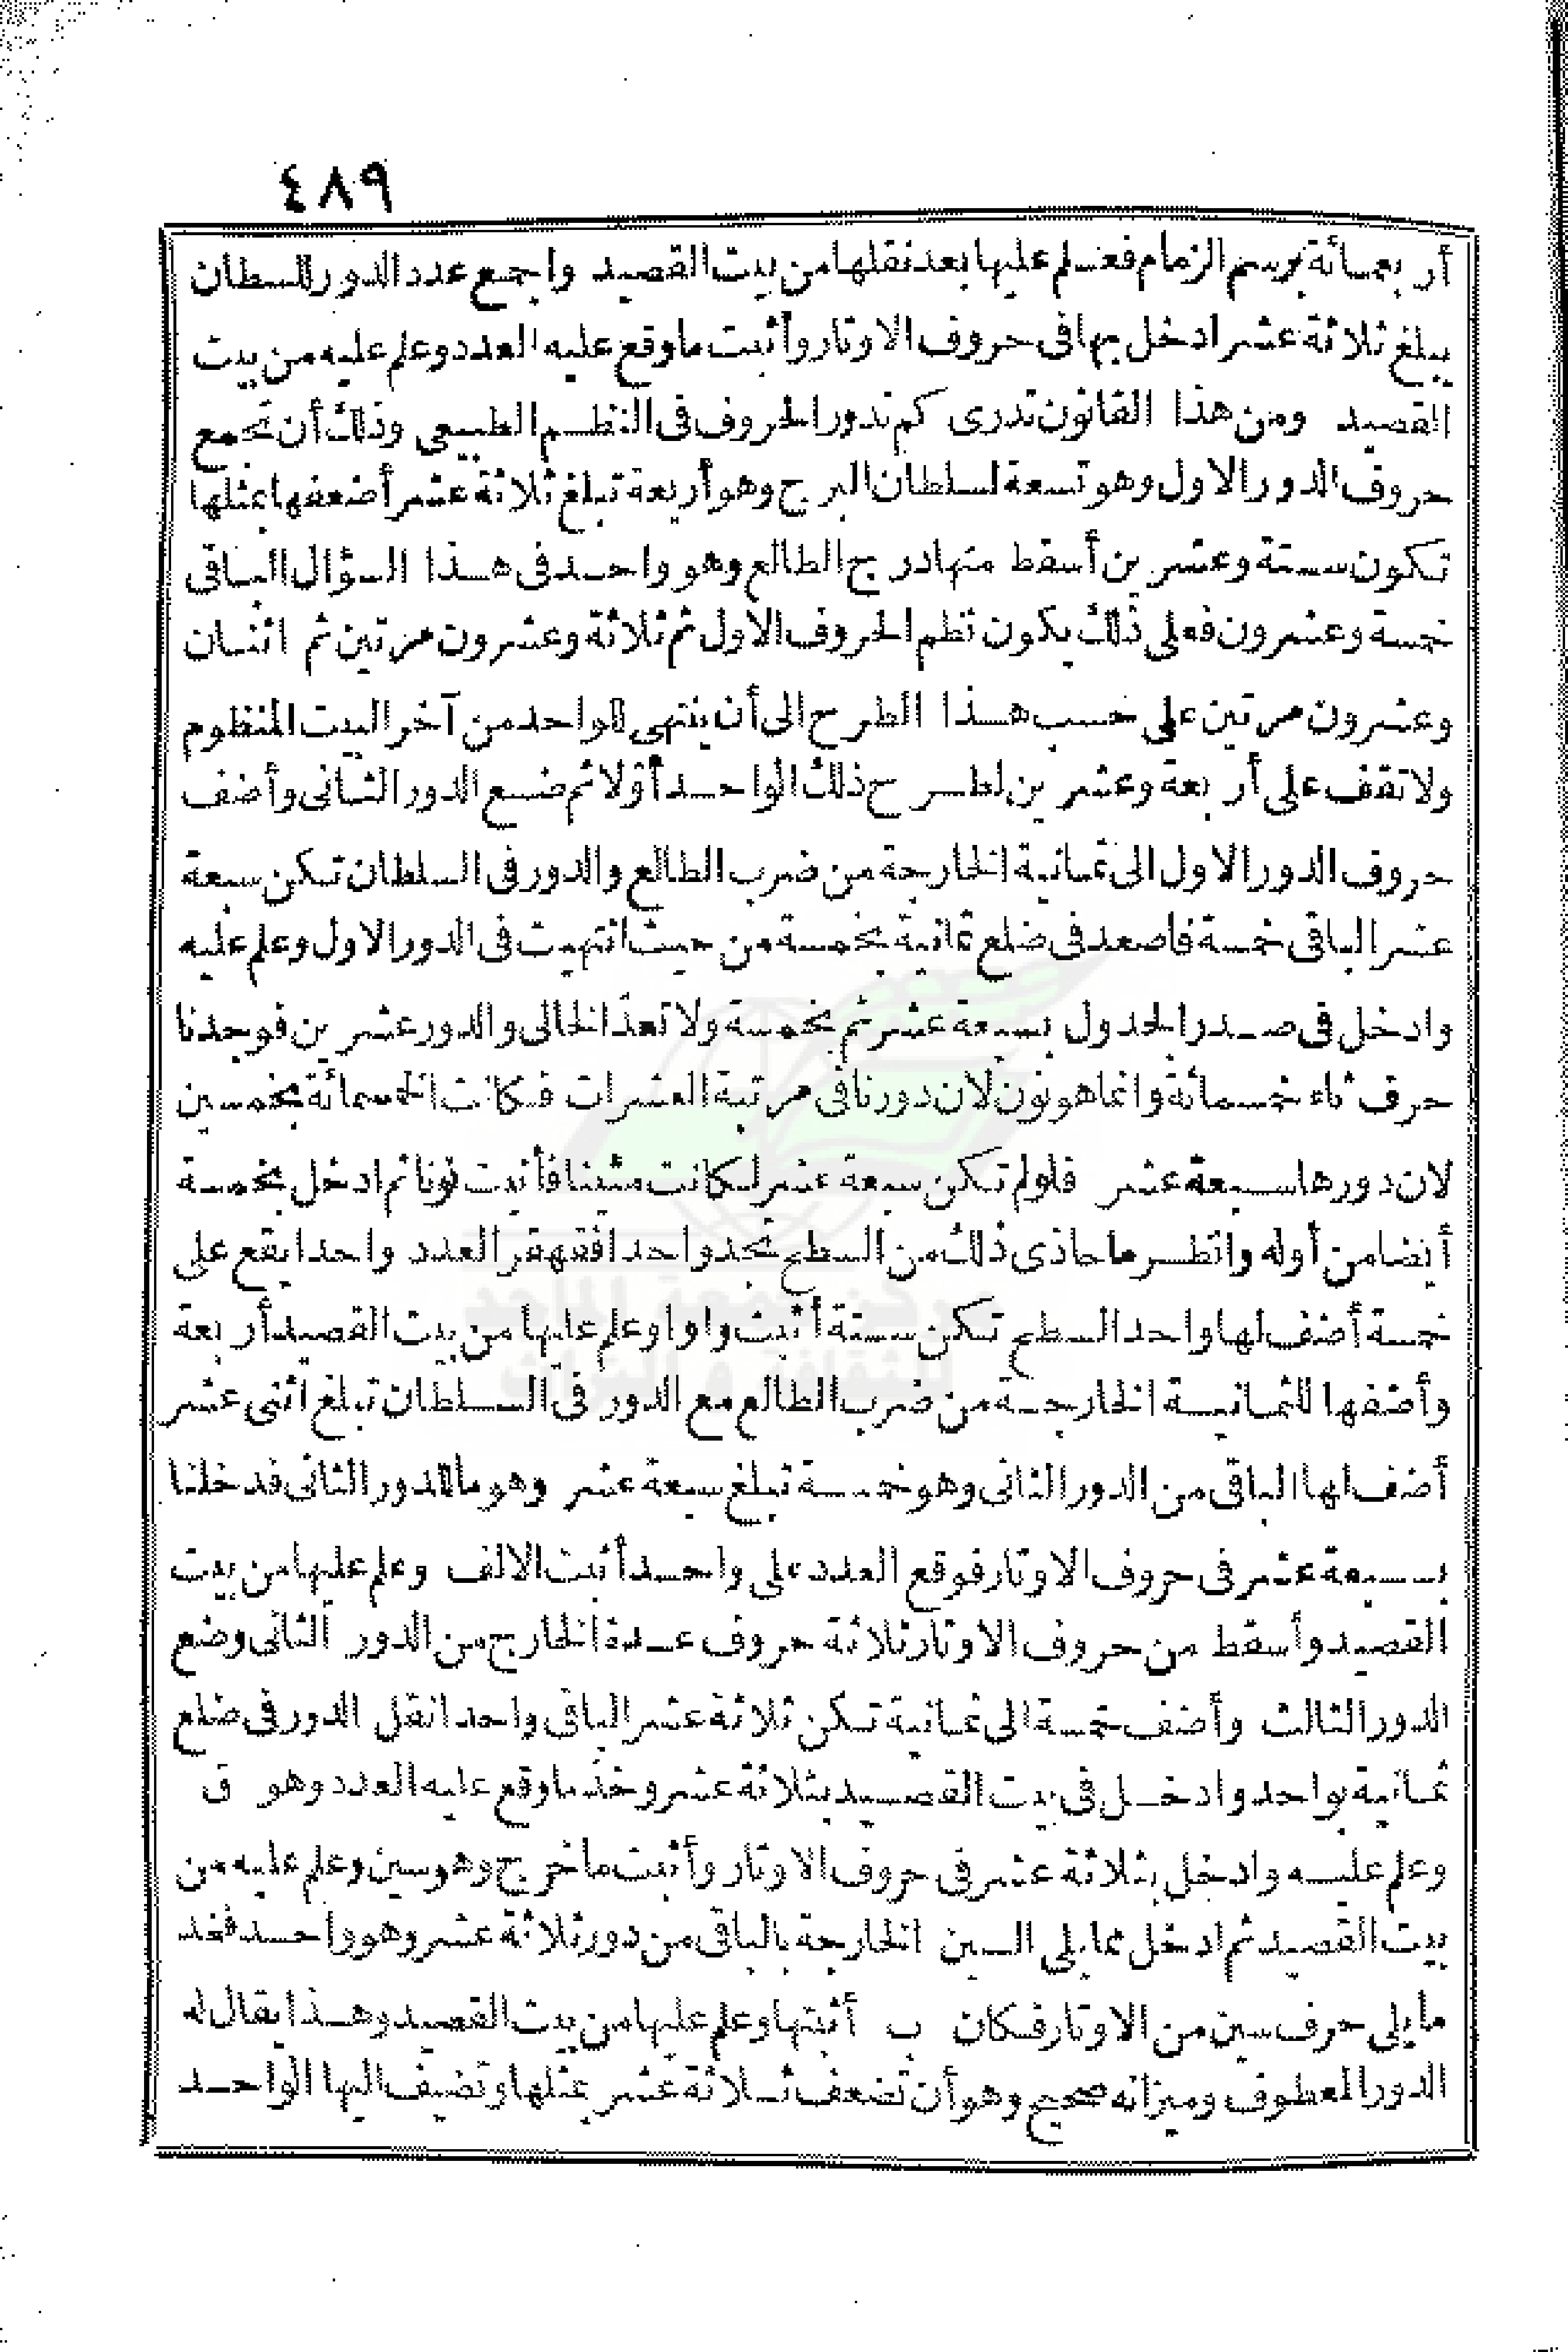 ٤٨٩
أربعمائة برسم الزمام فعلم عليها بعد نقلها من بيت القصيد واجمع عدد الدور للسلطان
يبلغ ثلاثة عشر ادخل بها فى حروف الاوتار وأثبت ما وقع عليه العدد وعلم عليه من بيت
القصيد ومن هذا القانون تدرى كم تدور الحروف فى النظم الطبيعى وذلك أن تجمع
حروف الدور الاول وهو تسعة لسلطان البرج وهو أربعة تبلغ ثلاثة عشر أضعفها بمثلها
تكون ستة وعشرين أسقط منها درج الطالع وهو واحد فى هذا السؤال الباقى
خمسة وعشرون فعلى ذلك يكون نظم الحروف الاول ثم ثلاثة وعشرون مرتين ثم اثنان
وعشرون مرتين على حسب هذا الطرح الى أن ينتهى للواحد من آخر البيت المنظوم
ولا تقف على أربعة وعشرين لطرح ذلك الواحد أولا ثم ضع الدور الثانى وأضف
حروف الدور الاول الى ثمانية الخارجة من ضرب الطالع والدور فى السلطان تكن سبعة
عشر الباقى خمسة فاصعد فى ضلع ثمانية بخمسة من حيث انتهيت فى الدور الاول وعلم عليه
وادخل فى صدر الجدول بسبعة عشر ثم بخمسة ولا تعد الخالى والدور عشرين فوجدنا
حرف ثاء خمسمائة وانما هو نون لان دورنا فى مرتبة العشرات فكانت الخمسمائة بخمسين
لان دورها سبعة عشر فلو لم تكن سبعة عشر لكانت مئينا فأثبت نونا ثم ادخل بخمسة
أيضا من أوله وانظر ما حاذى ذلك من السطح تجد واحدا فقهقر العدد واحدا يقع على
خمسة أضف لها واحد السطح تكن ستة أثبت واوا وعلم عليها من بيت القصيد أربعة
وأضفها للثمانية الخارجة من ضرب الطالع مع الدور فى السلطان تبلغ اثنى عشر
أضف لها الباقى من الدور الثانى وهو خمسة تبلغ سبعة عشر وهو ما للدور الثانى فدخلنا
بسبعة عشر فى حروف الاوتار فوقع العدد على واحد أثبت الالف وعلم عليها من بيت
القصيد وأسقط من حروف الاوتار ثلاثة حروف عدة الخارج من الدور الثانى وضع
الدور الثالث وأضف خمسة الى ثمانية تكن ثلاثة عشر الباقى واحد انقل الدور فى ضلع
ثمانية بواحد وادخل فى بيت القصيد بثلاثة عشر وخذ ما وقع عليه العدد وهو ق
وعلم عليه وادخل بثلاثة عشر فى حروف الاوتار وأثبت ما خرج وهو سين وعلم عليه من
بيت القصيد ثم ادخل مما يلى السين الخارجة بالباقى من دور ثلاثة عشر وهو واحد فخذ
ما يلى حرف سين من الاوتار فكان ب أثبتها وعلم عليها من بيت القصيد وهذا يقال له
الدور المعطوف وميزانه صحيح وهو أن تضعف ثلاثة عشر بمثلها وتضيف اليها الواحد
مركز جمعة الماجد
للثقافة والتراث